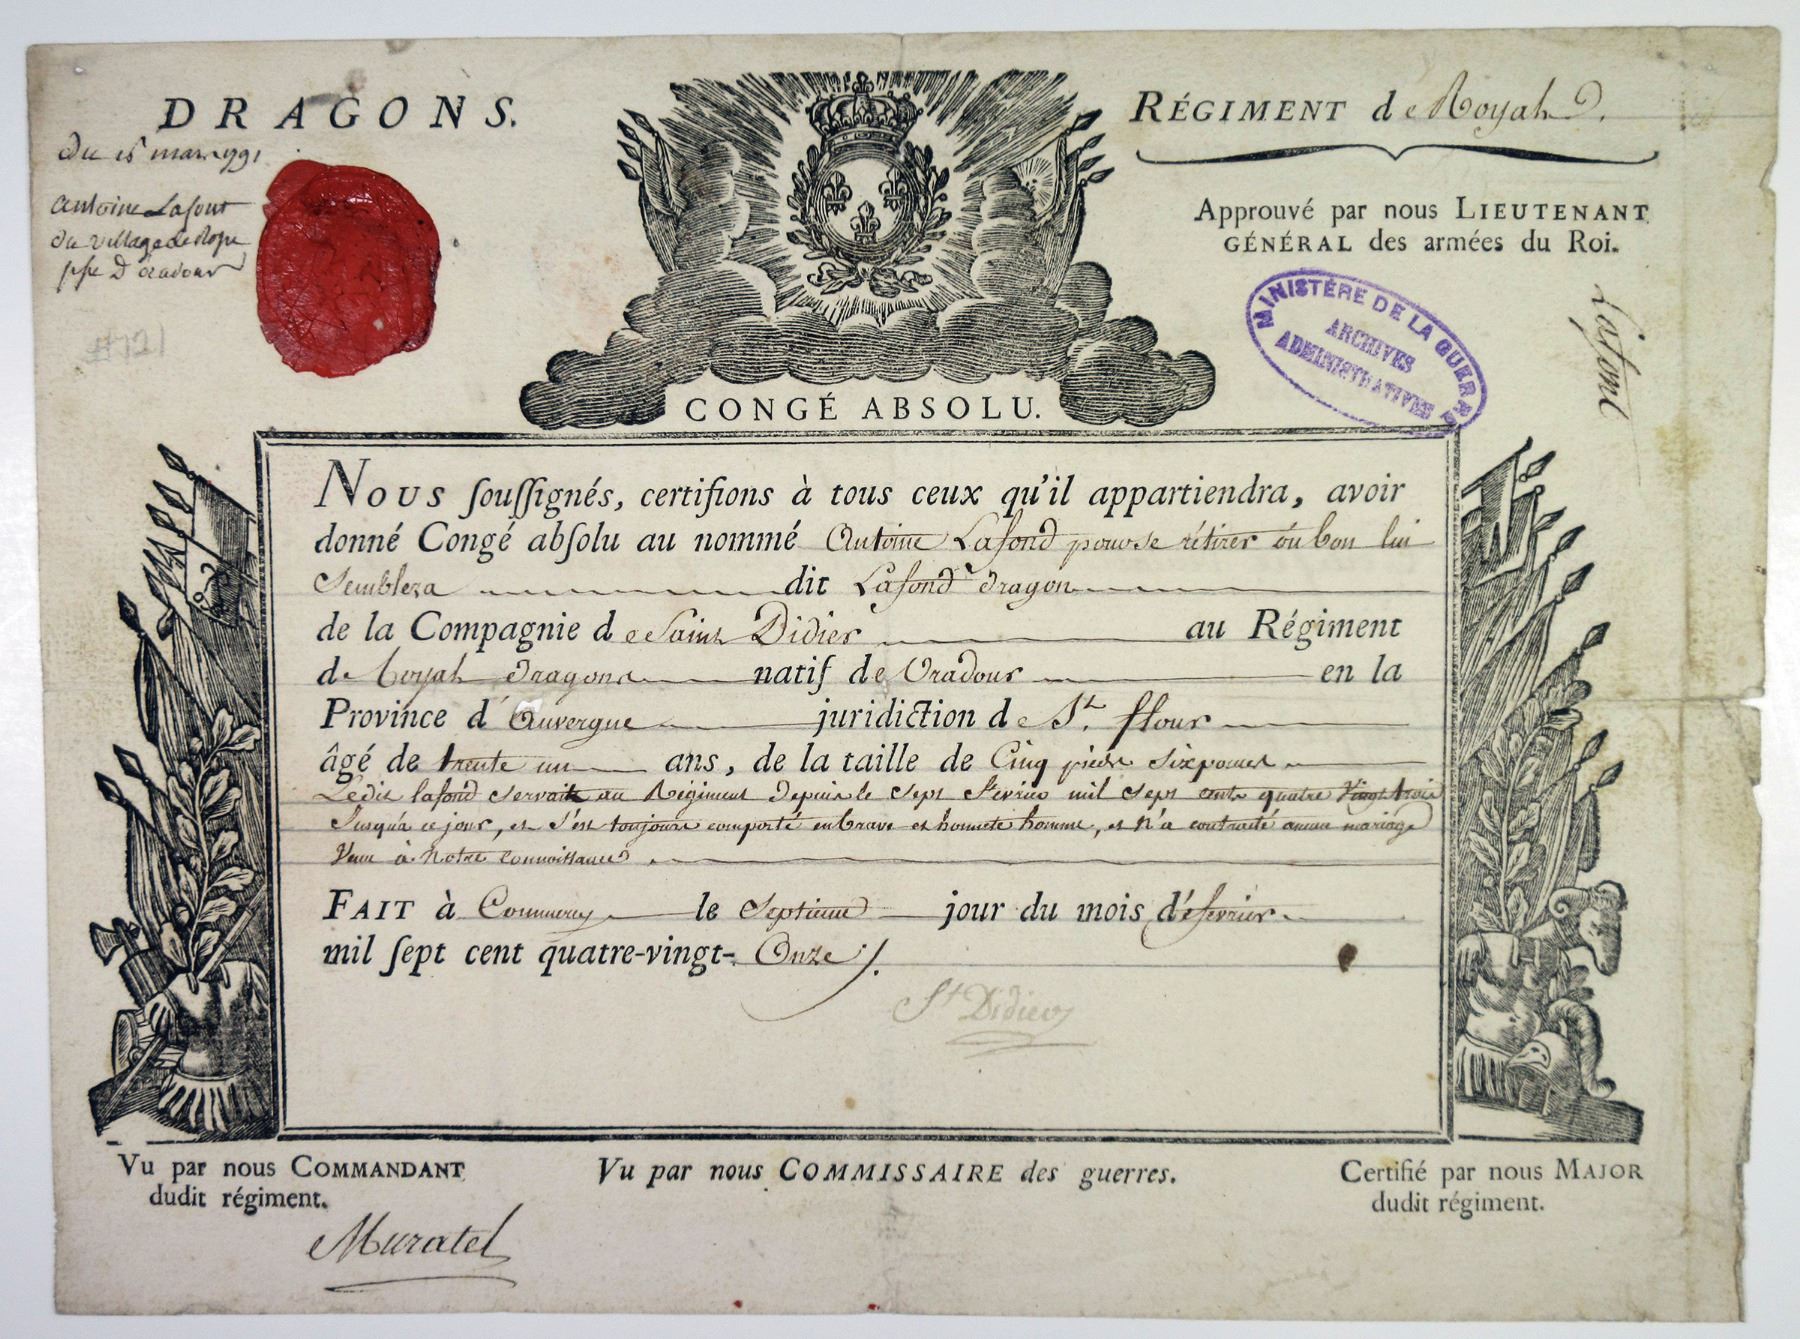 DRAGONS.
RÉGIMENT de Royal D.
Du 15 mars 1791
Antoine Lafont
du village de
psse D'oradour
#121
Approuvé par nous LIEUTENANT
GÉNÉRAL des armées du Roi.
MINISTÈRE DE LA GUERRE
ARCHIVES
ADMINISTRATIVES
Lafont
CONGÉ ABSOLU.
Nous souſſignés, certifions à tous ceux qu'il appartiendra, avoir
donné Congé abſolu au nommé Antoine Lafond pour se rétirer où bon lui
Semblera dit Lafond dragon
de la Compagnie de Saint Didier au Régiment
de Royal dragons natif de Oradour en la
Province d'Auvergne juridiction de St. flour
âgé de trente un ans, de la taille de Cinq pieds six pouces
Ledit lafond servait au Régiment depuis le sept février mil sept cents quatre vingt trois
Jusqu'à ce jour, et s'est toujours comporté en brave et honnete homme, et n'a contracté aucun mariage
Venu à notre connoissance
FAIT à Commercy le septieme jour du mois de février
mil ſept cent quatre-vingt- Onze ./.
St Didier
Vu par nous COMMANDANT
dudit régiment.
Vu par nous COMMISSAIRE des guerres.
Certifié par nous MAJOR
dudit régiment.
Muratel